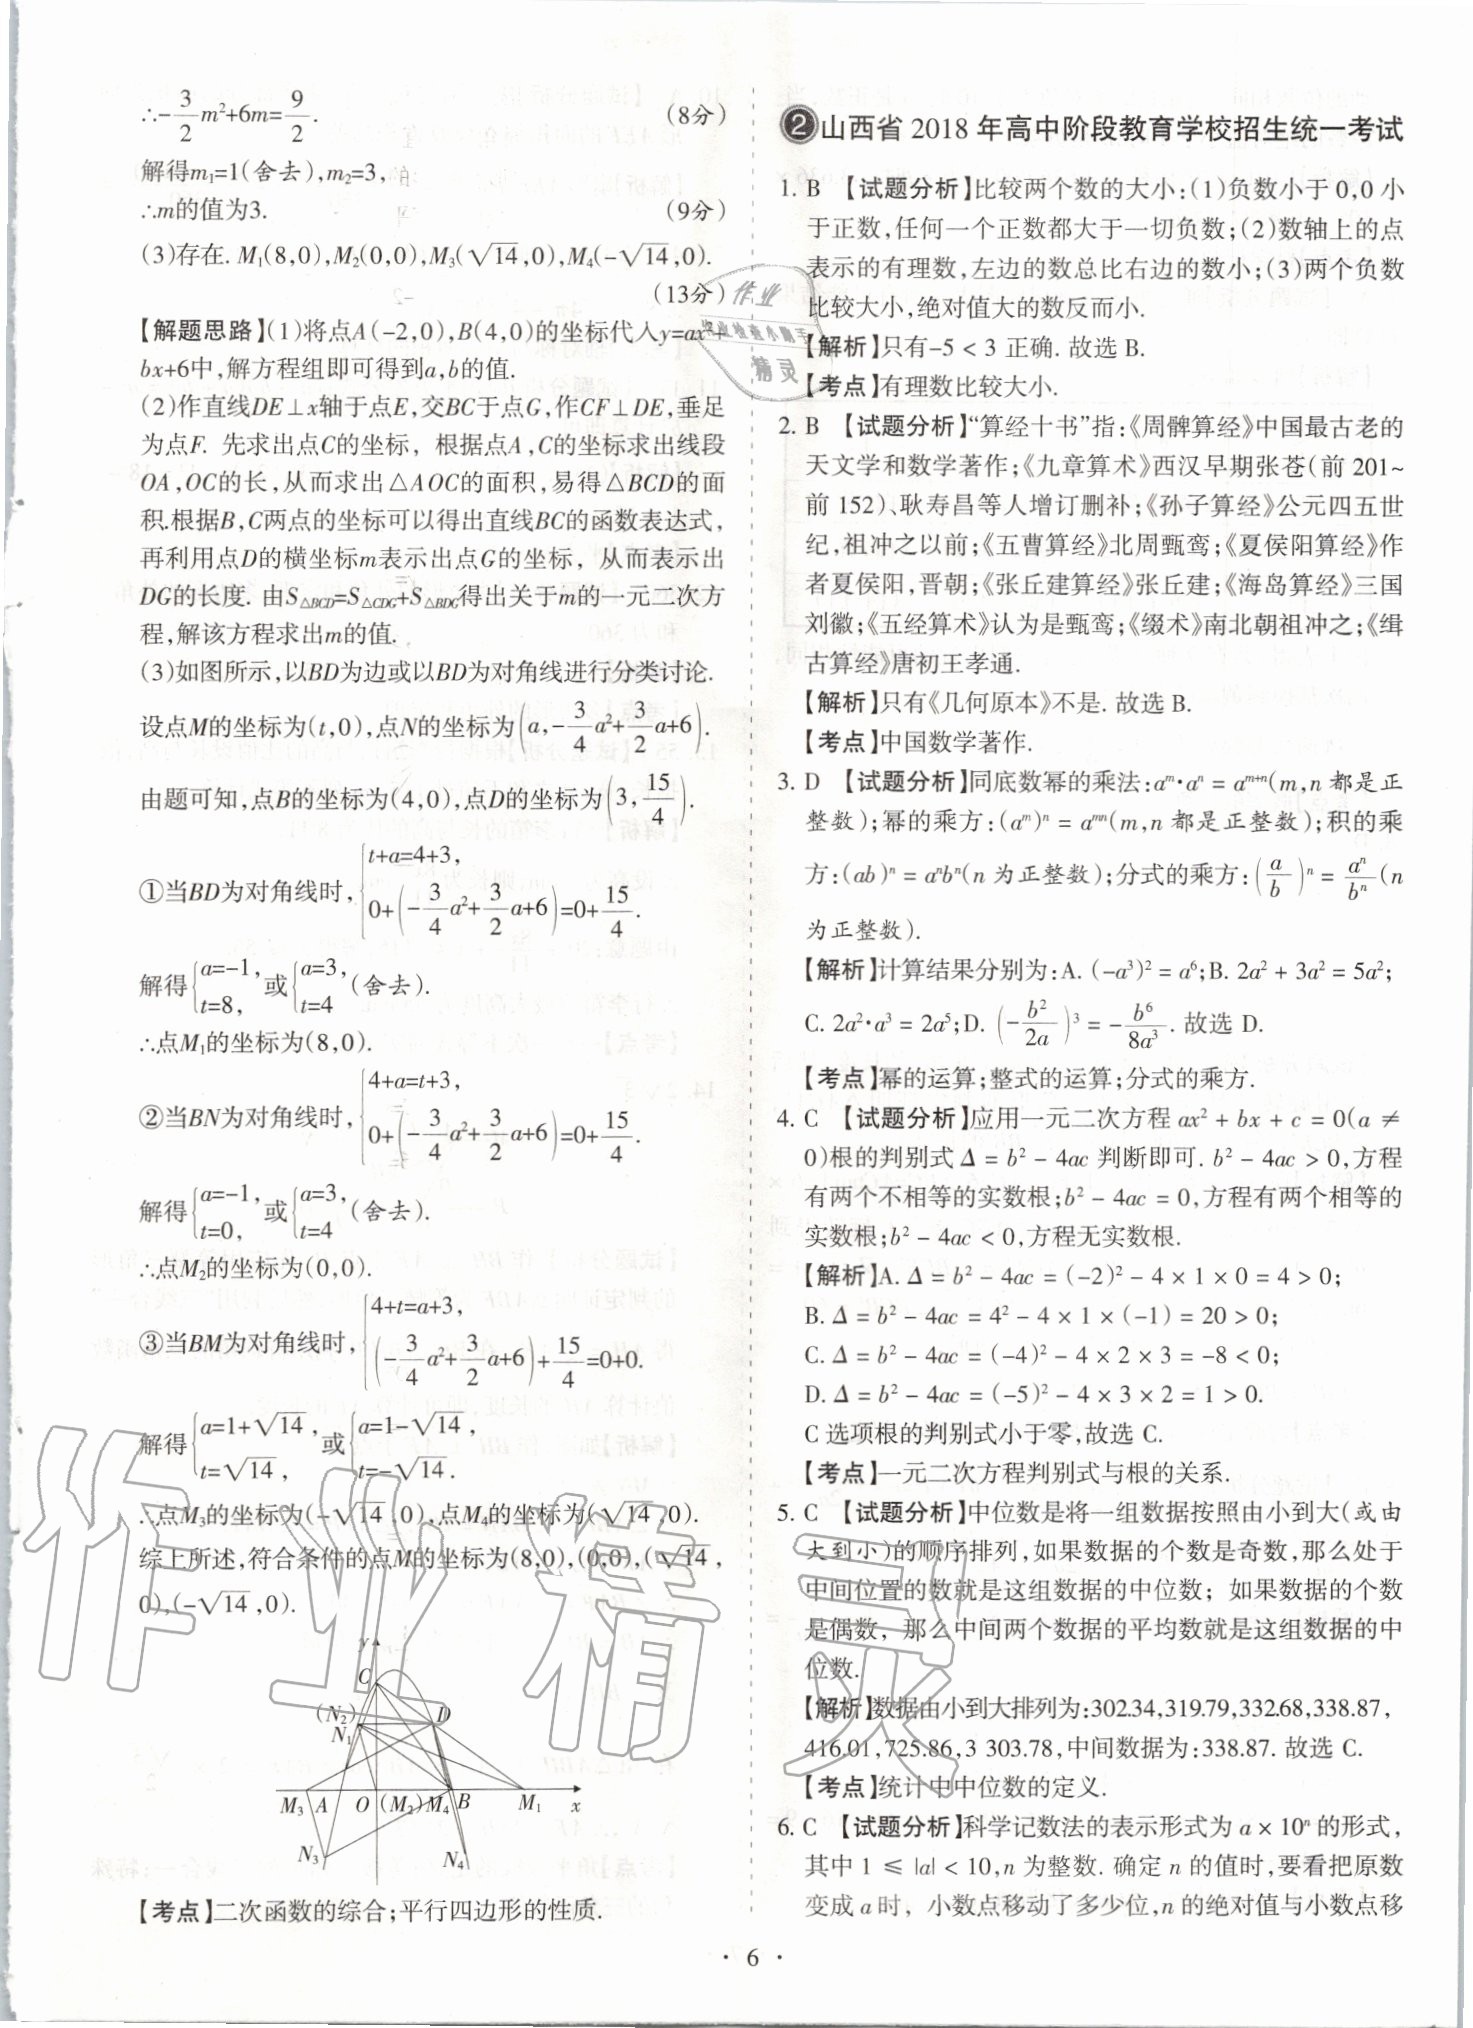 ∴-3/2m²+6m=9/2. (8分)
解得m₁=1(舍去),m₂=3,
∴m的值为3. (9分)
(3)存在. M₁(8,0),M₂(0,0),M₃(√14,0),M₄(-√14,0).
(13分)
【解题思路】(1)将点A(-2,0),B(4,0)的坐标代入y=ax²+
bx+6中,解方程组即可得到a,b的值.
(2)作直线DE⊥x轴于点E,交BC于点G,作CF⊥DE,垂足
为点F. 先求出点C的坐标, 根据点A,C的坐标求出线段
OA,OC的长,从而求出△AOC的面积,易得△BCD的面
积.根据B,C两点的坐标可以得出直线BC的函数表达式,
再利用点D的横坐标m表示出点G的坐标, 从而表示出
DG的长度. 由S△BCD=S△CDG+S△BDG得出关于m的一元二次方
程,解该方程求出m的值.
(3)如图所示,以BD为边或以BD为对角线进行分类讨论.
设点M的坐标为(t,0),点N的坐标为(a,-3/4a²+3/2a+6).
由题可知,点B的坐标为(4,0),点D的坐标为(3,15/4).
①当BD为对角线时,{t+a=4+3,
0+(-3/4a²+3/2a+6)=0+15/4.
解得{a=-1,t=8,或{a=3,t=4(舍去).
∴点M₁的坐标为(8,0).
②当BN为对角线时,{4+a=t+3,
0+(-3/4a²+3/2a+6)=0+15/4.
解得{a=-1,t=0,或{a=3,t=4(舍去).
∴点M₂的坐标为(0,0).
③当BM为对角线时,{4+t=a+3,
(-3/4a²+3/2a+6)+15/4=0+0.
解得{a=1+√14,t=√14,或{a=1-√14,t=-√14.
∴点M₃的坐标为(-√14,0),点M₄的坐标为(√14,0).
综上所述,符合条件的点M的坐标为(8,0),(0,0),(√14,
0),(-√14,0).
y
C
(N₂)
D
N₁
M₃ A O (M₂) M₄ B M₁ x
N₃ N₄
【考点】二次函数的综合;平行四边形的性质.
❷山西省 2018 年高中阶段教育学校招生统一考试
1. B 【试题分析】比较两个数的大小:(1)负数小于 0,0 小
于正数,任何一个正数都大于一切负数;(2)数轴上的点
表示的有理数,左边的数总比右边的数小;(3)两个负数
比较大小,绝对值大的数反而小.
【解析】只有-5 < 3 正确. 故选 B.
【考点】有理数比较大小.
2. B 【试题分析】“算经十书”指:《周髀算经》中国最古老的
天文学和数学著作;《九章算术》西汉早期张苍(前 201~
前 152)、耿寿昌等人增订删补;《孙子算经》公元四五世
纪,祖冲之以前;《五曹算经》北周甄鸾;《夏侯阳算经》作
者夏侯阳,晋朝;《张丘建算经》张丘建;《海岛算经》三国
刘徽;《五经算术》认为是甄鸾;《缀术》南北朝祖冲之;《缉
古算经》唐初王孝通.
【解析】只有《几何原本》不是. 故选 B.
【考点】中国数学著作.
3. D 【试题分析】同底数幂的乘法:aᵐ·aⁿ = aᵐ⁺ⁿ(m,n 都是正
整数);幂的乘方:(aᵐ)ⁿ = aᵐⁿ(m,n 都是正整数);积的乘
方:(ab)ⁿ = aⁿbⁿ(n 为正整数);分式的乘方:(a/b)ⁿ = aⁿ/bⁿ(n
为正整数).
【解析】计算结果分别为:A. (-a³)² = a⁶;B. 2a² + 3a² = 5a²;
C. 2a²·a³ = 2a⁵;D. (-b²/2a)³ = -b⁶/8a³. 故选 D.
【考点】幂的运算;整式的运算;分式的乘方.
4. C 【试题分析】应用一元二次方程 ax² + bx + c = 0(a ≠
0)根的判别式 Δ = b² - 4ac 判断即可. b² - 4ac > 0,方程
有两个不相等的实数根;b² - 4ac = 0,方程有两个相等的
实数根;b² - 4ac < 0,方程无实数根.
【解析】A. Δ = b² - 4ac = (-2)² - 4 × 1 × 0 = 4 > 0;
B. Δ = b² - 4ac = 4² - 4 × 1 × (-1) = 20 > 0;
C. Δ = b² - 4ac = (-4)² - 4 × 2 × 3 = -8 < 0;
D. Δ = b² - 4ac = (-5)² - 4 × 3 × 2 = 1 > 0.
C 选项根的判别式小于零,故选 C.
【考点】一元二次方程判别式与根的关系.
5. C 【试题分析】中位数是将一组数据按照由小到大(或由
大到小)的顺序排列,如果数据的个数是奇数,那么处于
中间位置的数就是这组数据的中位数; 如果数据的个数
是偶数, 那么中间两个数据的平均数就是这组数据的中
位数.
【解析】数据由小到大排列为:302.34,319.79,332.68,338.87,
416.01,725.86,3 303.78,中间数据为:338.87. 故选 C.
【考点】统计中中位数的定义.
6. C 【试题分析】科学记数法的表示形式为 a × 10ⁿ 的形式,
其中 1 ≤ |a| < 10,n 为整数. 确定 n 的值时,要看把原数
变成 a 时, 小数点移动了多少位,n 的绝对值与小数点移
· 6 ·
作业
精灵
作业精灵